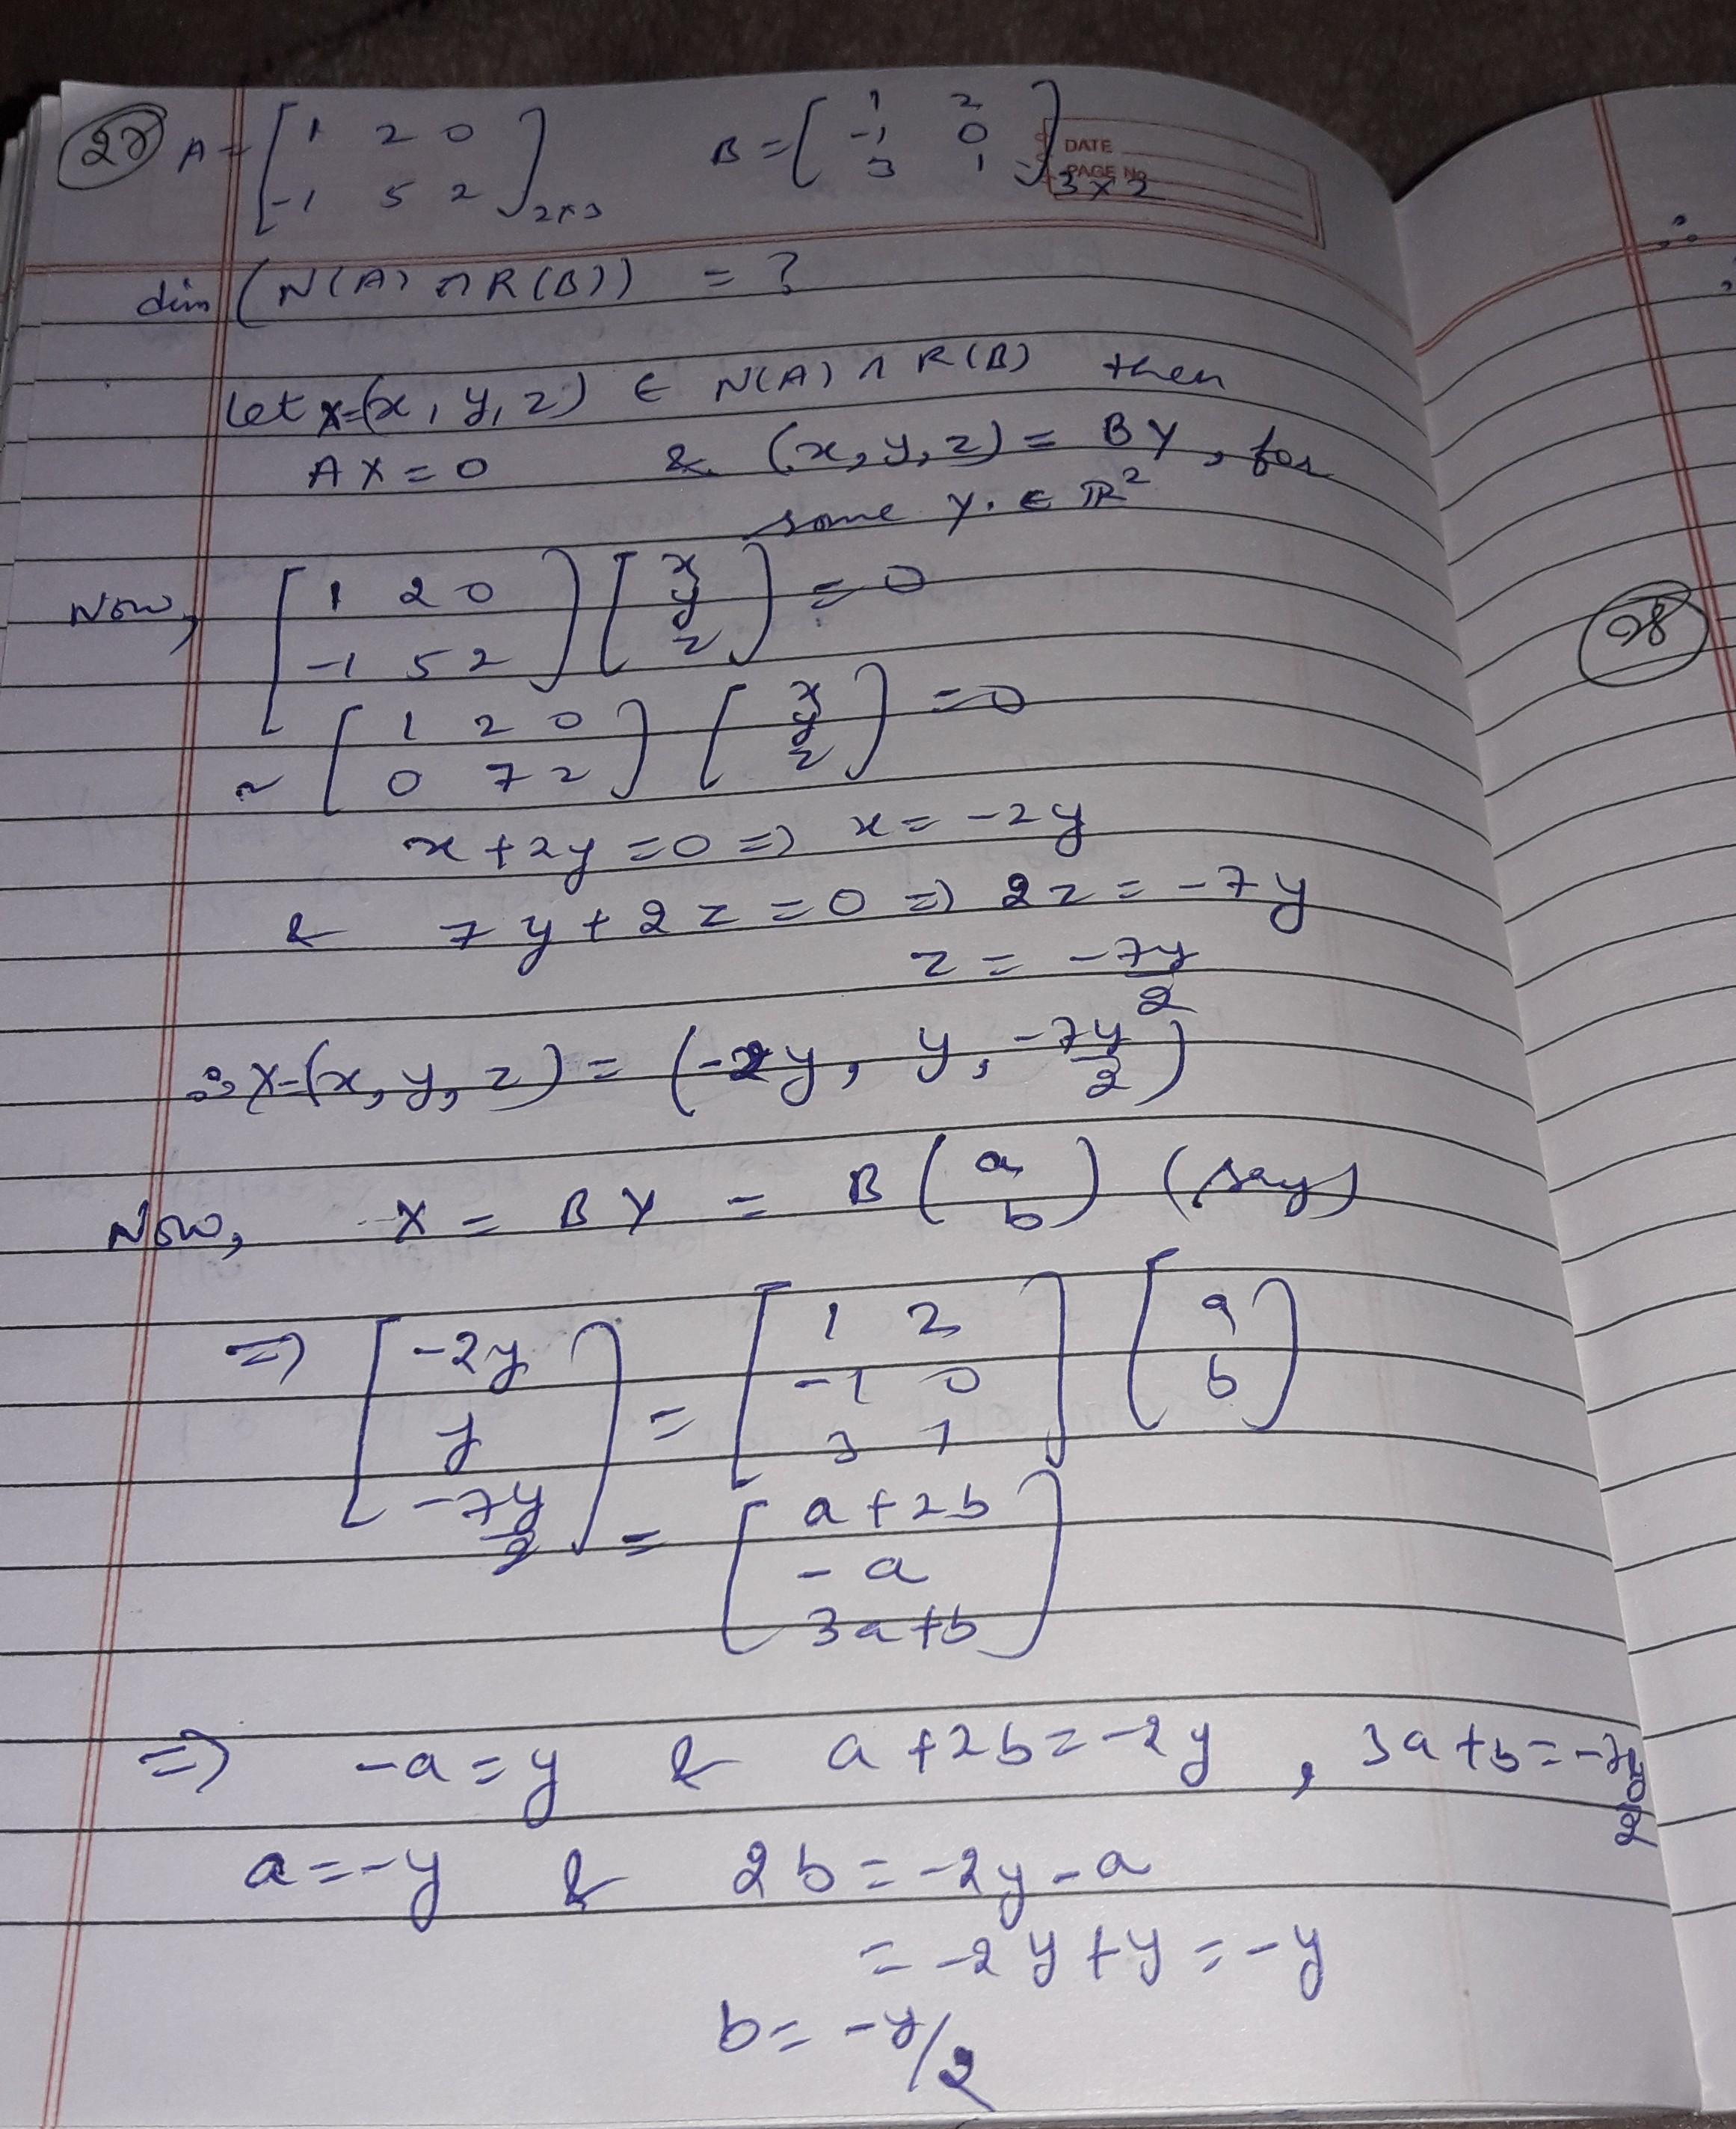 27 A = [ 1 2 0 B = [ 1 2
-1 5 2 ]2×3 -1 0
3 1 ]3×2
DATE
PAGE No.
dim (N(A) ∩ R(B)) = ?
Let X=(x, y, z) ∈ N(A) ∩ R(B) then
AX = 0 & (x, y, z) = BY, for
some Y. ∈ ℝ²
Now, [ 1 2 0 ; -1 5 2 ] [ x ; y ; z ] = 0
~ [ 1 2 0 ; 0 7 2 ] [ x ; y ; z ] = 0
x + 2y = 0 ⇒ x = -2y
& 7y + 2z = 0 ⇒ 2z = -7y
z = -7y/2
∴ X=(x, y, z) = (-2y, y, -7y/2)
Now, X = BY = B ( a ; b ) (say)
⇒ [ -2y ; y ; -7y/2 ] = [ 1 2 ; -1 0 ; 3 1 ] [ a ; b ]
= [ a + 2b ; -a ; 3a+b ]
⇒ -a = y & a + 2b = -2y , 3a + b = -7y/2
a = -y & 2b = -2y - a
= -2y + y = -y
b = -y/2
28
∴